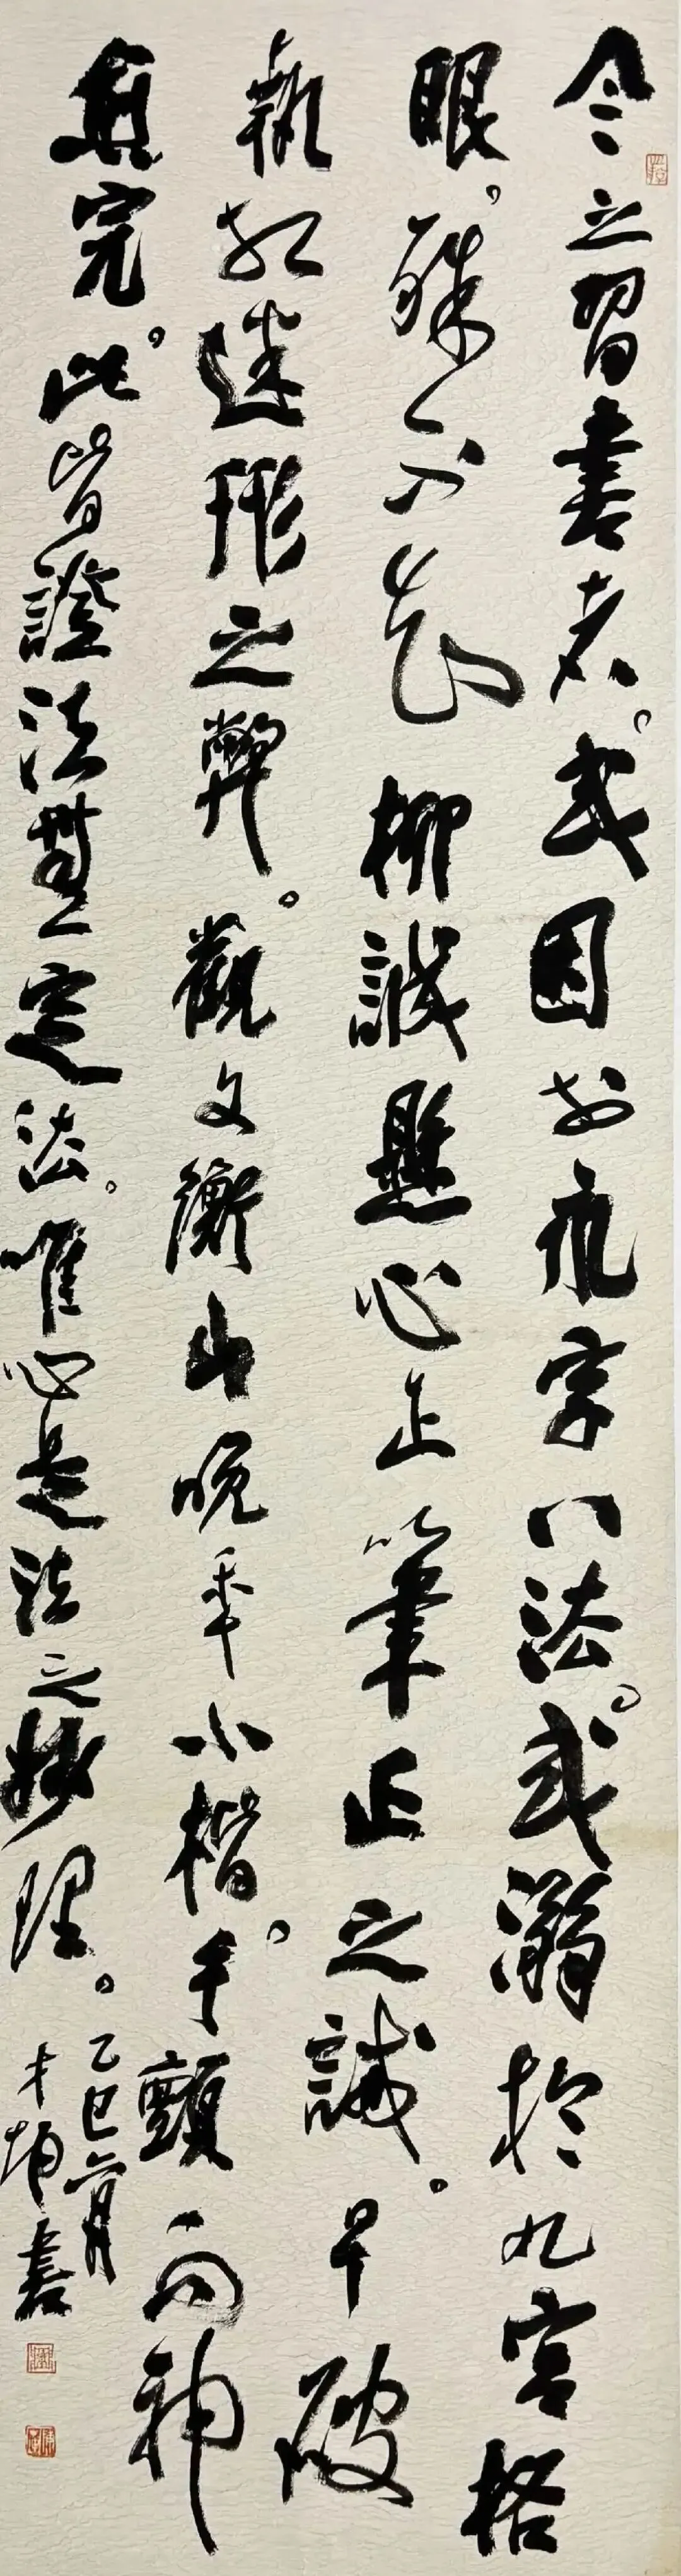 今之習書者。或因於永字八法。或溺於九宮格
眼。殊不知柳誠懸心正筆正之誡。早破
執相迷形之弊。觀文衡山晚年小楷。手顫而神
愈完。此皆證法無定法。唯心是法之妙理。
乙巳六月
才坤書